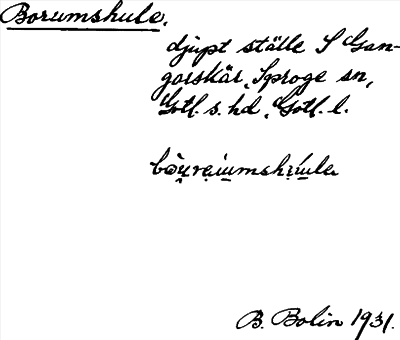 Borumshule.
djupt ställe S Gan-
garskär, Sproge sn,
Gotl. s. hd, Gotl. l.
B. Bolin 1931.